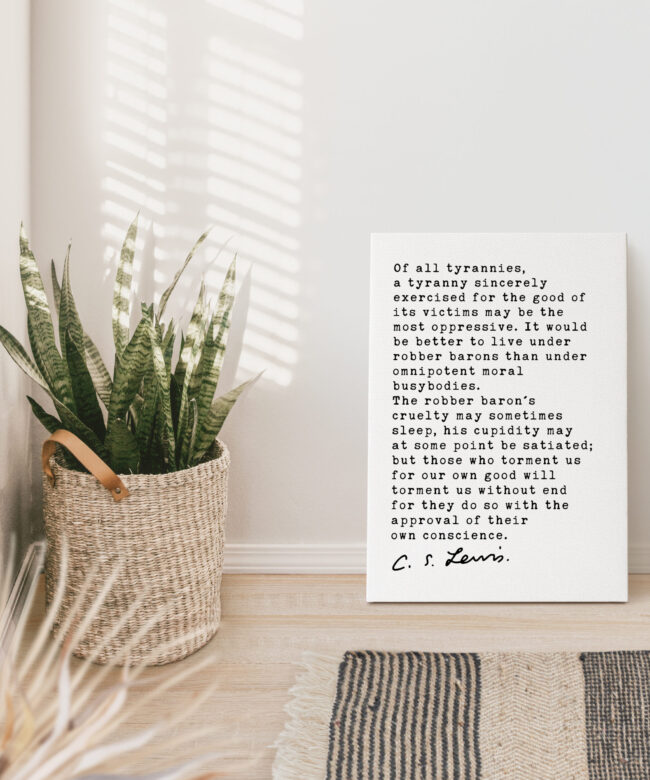 Of all tyrannies,
a tyranny sincerely
exercised for the good of
its victims may be the
most oppressive. It would
be better to live under
robber barons than under
omnipotent moral
busybodies.
The robber baron's
cruelty may sometimes
sleep, his cupidity may
at some point be satiated;
but those who torment us
for our own good will
torment us without end
for they do so with the
approval of their
own conscience.
C. S. Lewis.